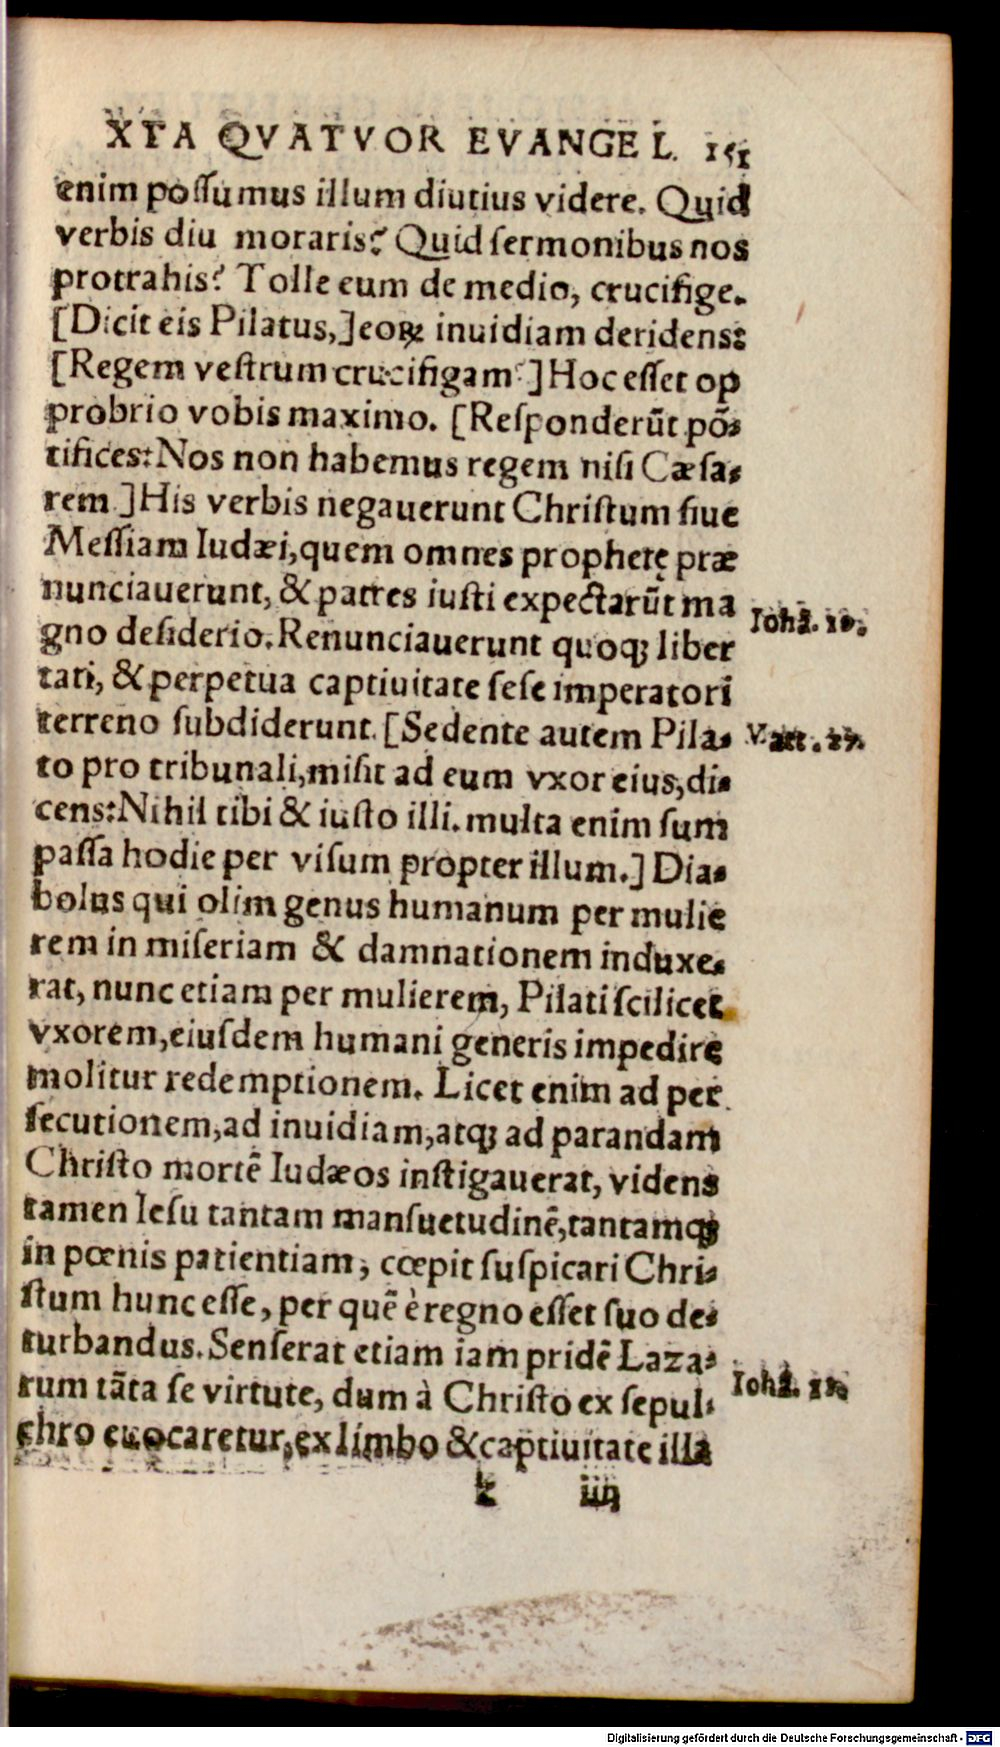 XTA QVATVOR EVANGEL. 151
enim poſſumus illum diutius videre. Quid
verbis diu moraris? Quid ſermonibus nos
protrahis? Tolle eum de medio, crucifige.
[Dicit eis Pilatus,] eoꝝ inuidiam deridens:
[Regem veſtrum crucifigam?] Hoc eſſet op
probrio vobis maximo. [Reſponderũt põ-
tifices: Nos non habemus regem niſi Cæſa-
rem.] His verbis negauerunt Chriſtum ſiue
Meſſiam Iudæi, quem omnes prophetę præ
nunciauerunt, & patres iuſti expectarũt ma
gno deſiderio. Renunciauerunt quoqꝫ liber
tati, & perpetua captiuitate ſeſe imperatori
terreno ſubdiderunt. [Sedente autem Pila-
to pro tribunali, miſit ad eum vxor eius, di-
cens: Nihil tibi & iuſto illi. multa enim ſum
paſſa hodie per viſum propter illum.] Dia-
bolus qui olim genus humanum per mulie
rem in miſeriam & damnationem induxe-
rat, nunc etiam per mulierem, Pilati ſcilicet
vxorem, eiuſdem humani generis impedire
molitur redemptionem. Licet enim ad per
ſecutionem, ad inuidiam, atqꝫ ad parandam
Chriſto mortẽ Iudæos inſtigauerat, videns
tamen Ieſu tantam manſuetudinẽ, tantamqꝫ
in pœnis patientiam, cœpit ſuſpicari Chri-
ſtum hunc eſſe, per quẽ è regno eſſet ſuo de-
turbandus. Senſerat etiam iam pridẽ Laza-
rum tãta ſe virtute, dum à Chriſto ex ſepul-
chro euocaretur, ex limbo & captiuitate illa
k iiij
Iohã.
Matt. 27.
Iohã. 11.
Digitalisierung gefördert durch die Deutsche Forschungsgemeinschaft - DFG